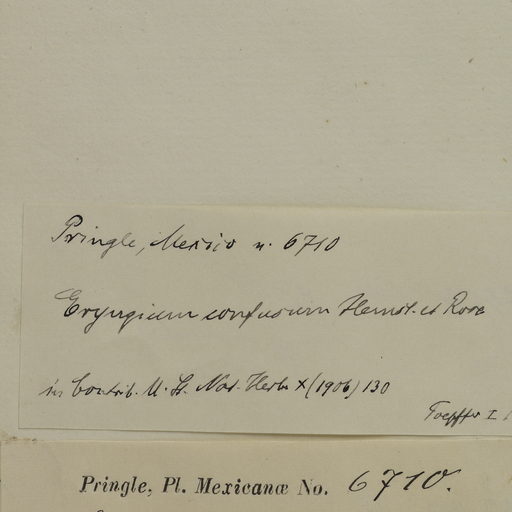 Pringle, Mexico n. 6710
Eryngium confusum Hemsl. et Rose
in Contrib. U. St. Nat. Herb. X (1906) 130
Toepffer I
Pringle, Pl. Mexicanæ No. 6710.